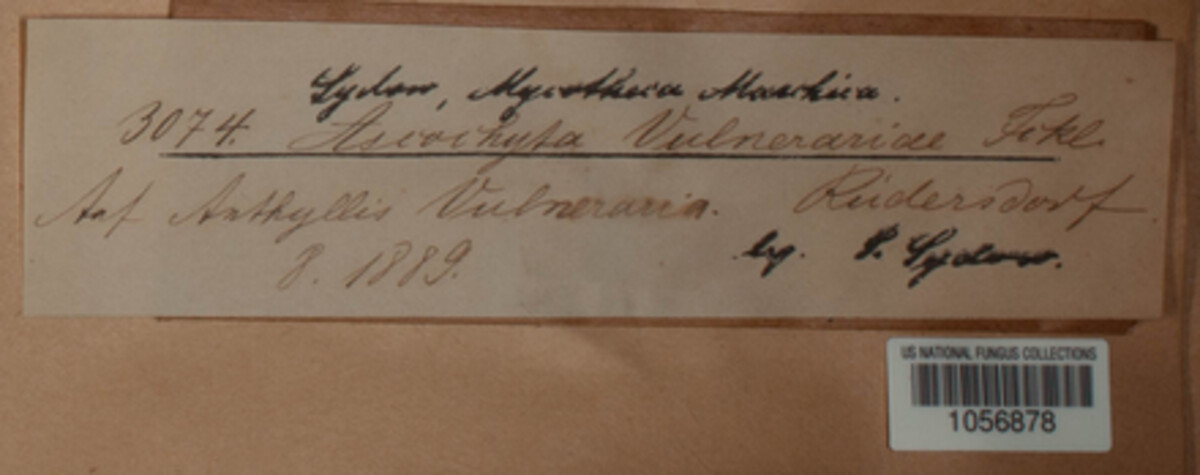 Sydow, Mycotheca Marchica.
3074. Ascochyta Vulnerariae Fckl.
Auf Anthyllis Vulneraria. Rüdersdorf
8. 1889. leg. P. Sydow.
US NATIONAL FUNGUS COLLECTIONS
1056878